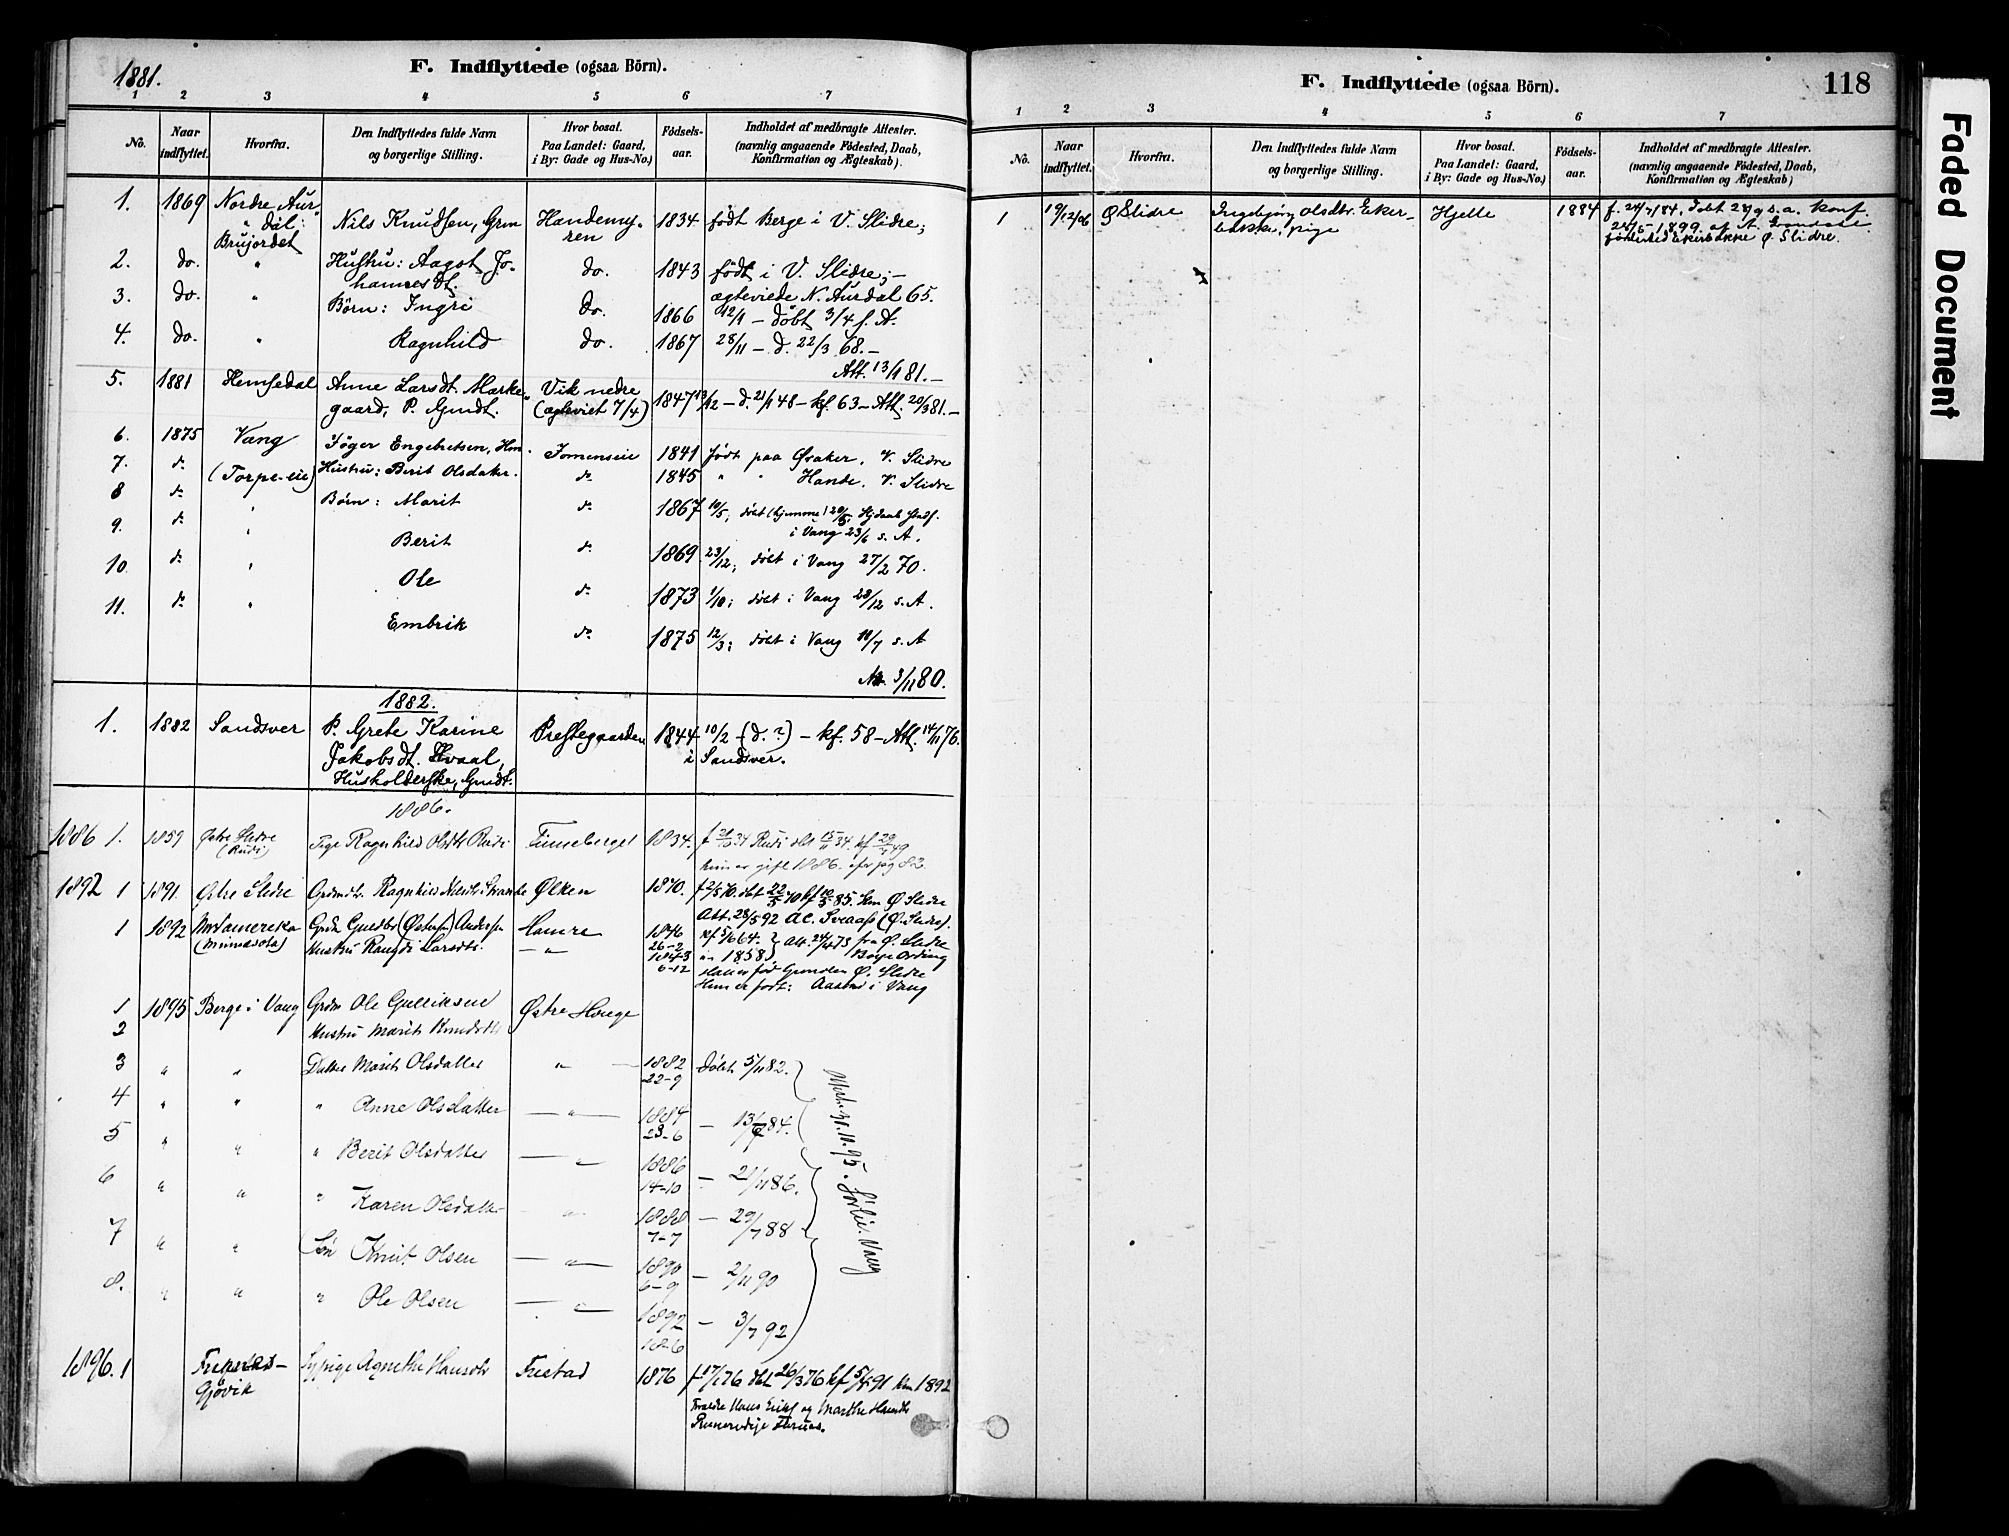 1881.
F. Indflyttede (ogsaa Börn).
1 2 3 4 5 6 7
No. Naar indflyttet. Hvorfra. Den Indflyttedes fulde Navn og borgerlige Stilling. Hvor bosat. Paa Landet: Gaard, i By: Gade og Hus-No.) Födsels-aar. Indholdet af medbragte Attester. (navnlig angaaende Födested, Daab, Konfirmation og Ægteskab).
1. 1869 Nordre Aur-
dal: Nils Knudsen, Grm Handemy- 1834 født Berge i V. Slidre;
Brujordet ren
2. do. " Hustru: Aagot Jo- do. 1843 født i V. Slidre; –
hannesdt. ægteviede N. Aurdal 65.
3. do. " Børn: Ingri do. 1866 12/1 – døbt 3/4 s. A.
4. do. " Ragnhild do. 1867 28/11 – d. 22/3 68. –
Att. 13/1 81. –
5. 1881 Hemsedal Anne Larsdt. Marke- Vik nedre
gaard, P. Gmdt. (ægteviet 7/4) 1847 13/12 – d. 21/1 48 – kf. 63 – Att. 20/3 81. –
6. 1875 Vang Jøger Engebretsen, Hm. Jomenseie 1841 født paa Øvaker, V. Slidre
7. do (Torpe-eie) Hustru: Berit Olsdater. do 1845 " " Hande, V. Slidre
8 do " Børn: Marit do 1867 10/5; døbt (hjemme) 20/5, Hjdaab stadf.
i Vang 23/6 s. A.
9. do " Berit do 1869 23/12; døbt i Vang 27/2 70.
10. do " Ole do 1873 1/10; døbt i Vang 28/12 s. A.
11. do " Embrik do 1875 12/3; døbt i Vang 18/7 s. A
Att. 3/11 80.
1882.
1. 1882 Sandsver P. Grete Karine Prestegaarden 1844 10/2 (d. ?) – kf. 58 – Att. 14/11 76.
Jakobsdt. Hvaal, i Sandsver.
Husholderske, Gmdt.
1886.
1886 1. 1859 Østre Slidre Pige Ragnhild Olsdtr Rudi Finneberget 1834. f 31/10 34 Rudi dbt 15/11 34. kf 29/7 49
(Rudi) hun er gift 1886.
1892 1 1891. Østre Slidre Grdmdt. Ragnhild Nilsdtr. Strande Ølken 1870. f 2/5 70. dbt 22/5 70 kf 10/5 85. Hm Ø Slidre
Att. 28/5 92 A.C. Svaass (Ø. Slidre).
1 1892 N. Amerika Hamre 1846 kf 5/6 64.
(Minnesota) Hustru Larsdtr. – " – 26-2 Att. 24/4 73 fra Ø. Slidre
1843 1858
6-12 Han er fød Grønolen Ø. Slidre
Hun er født: i Vang
1 1895 Berge i Vang Grdm Ole Gulliksen Østre Hauge
2 Hustru Marit Knudsdtr
3 " " Datter Marit Olsdatter – " – 1882 døbt 5/11 82.
22-9
4 " " " Anne Olsdatter – " – 1884 – 13/7 84.
23-6
5 " " " Berit Olsdatter – " 1886 – 21/11 86.
14-10
6 " " " Karen Olsdatter – " – 1888 – 29/7 88
7-7
7 " " Søn Knut Olsen – " – 1890 – 2/11 90
6-9
8. " " " Ole Olsen – " – 1892 – 3/7 92
18-6
11. 95. Vang
1896. 1 Sypige Agnethe Hansdtr Fristad 1876 f 17/1 76 dbt 26/3 76 kf 5/4 91 1892
Gjøvik
Hans og Marthe
F. Indflyttede (ogsaa Börn).
118
1 2 3 4 5 6 7
No. Naar indflyttet. Hvorfra. Den Indflyttedes fulde Navn og borgerlige Stilling. Hvor bosat. Paa Landet: Gaard, i By: Gade og Hus-No.) Födsels-aar. Indholdet af medbragte Attester. (navnlig angaaende Födested, Daab, Konfirmation og Ægteskab)
1 19/12/06 Ø Slidre Ingebjørg Olsdtr. Eker- Hjelle 1884 f. 24/7 84. Døbt s. a. Konf.
bakke, pige 1899 af A.
fødested Ekerbakke Ø. Slidre.
Faded Document